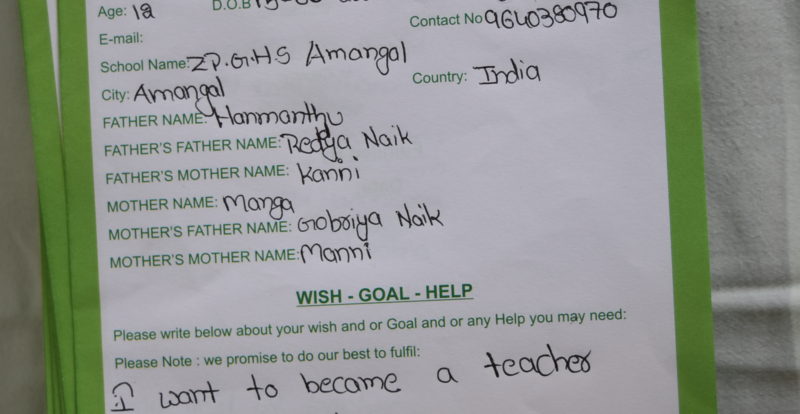 Age: 12 D.O.B
Contact No 9640380970
E-mail:
School Name: ZP.G.H.S Amangal
City: Amangal Country: India
FATHER NAME: Hanmanthu
FATHER'S FATHER NAME: Redya Naik
FATHER'S MOTHER NAME: Kanni
MOTHER NAME: Manga
MOTHER'S FATHER NAME: Gobriya Naik
MOTHER'S MOTHER NAME: Manni
WISH - GOAL - HELP
Please write below about your wish and or Goal and or any Help you may need:
Please Note : we promise to do our best to fulfil:
I want to became a teacher